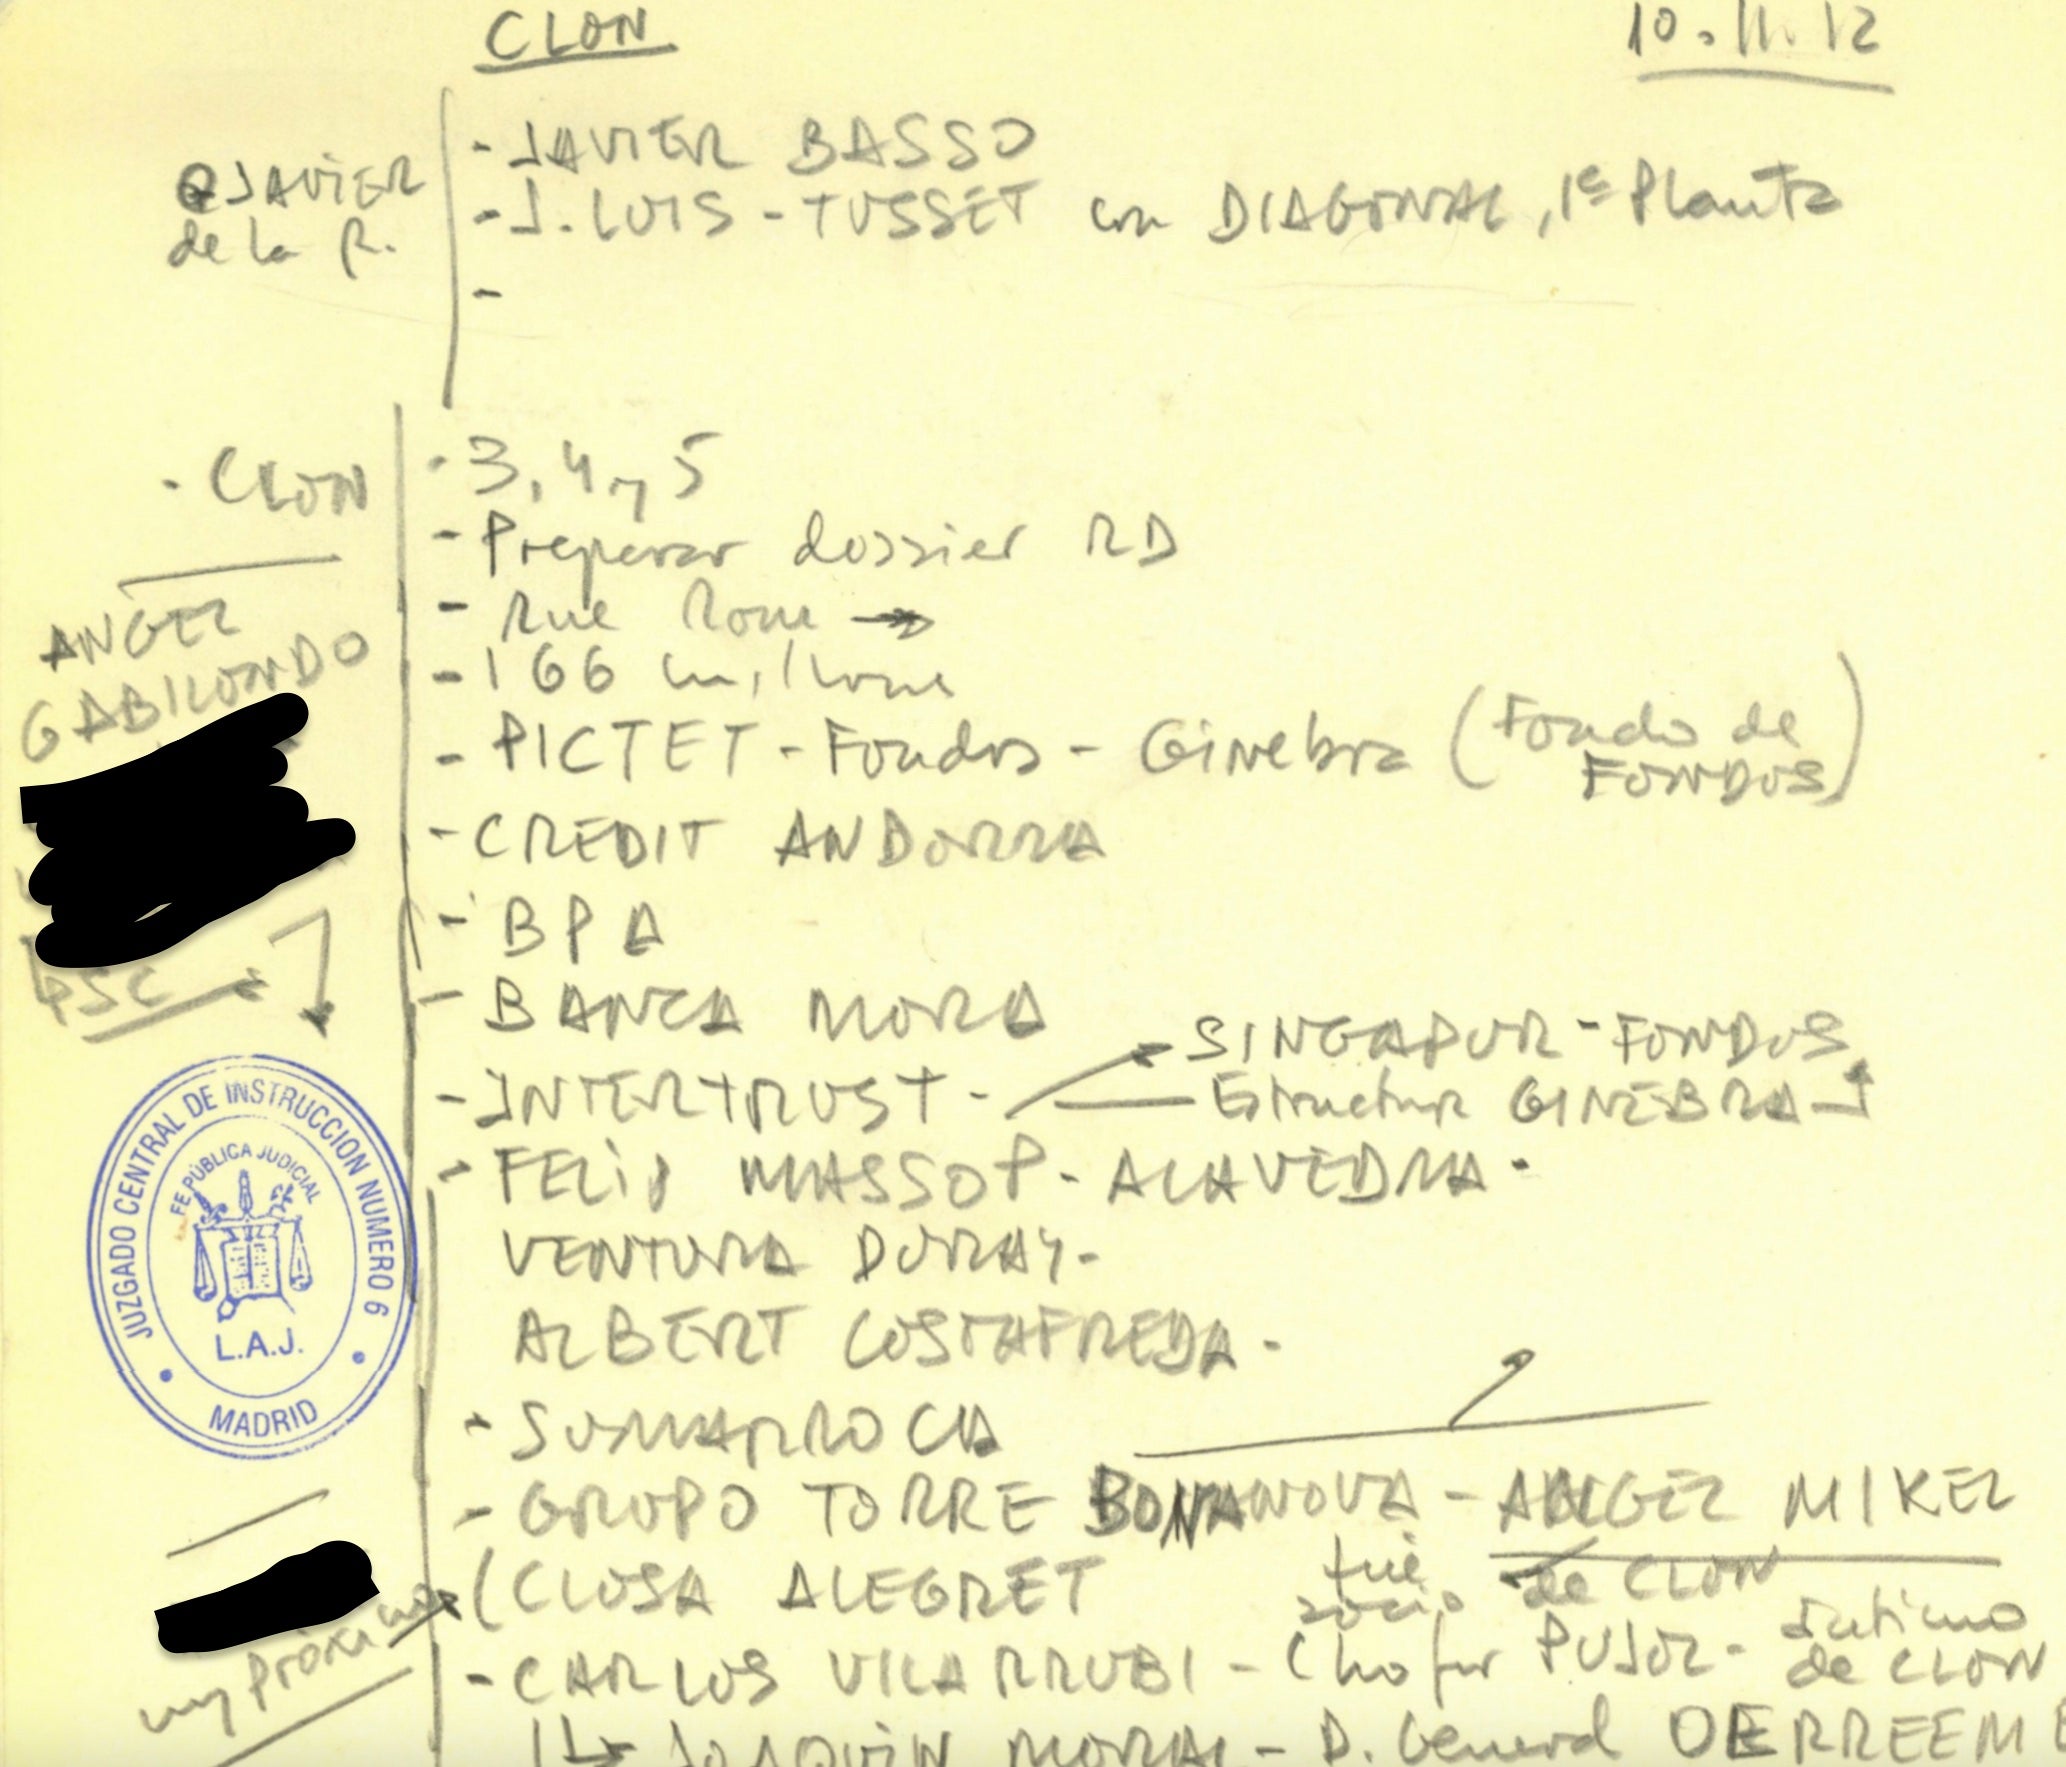 CLON
10.11.12
JAVIER
de la R.
- JAVIER BASSO
- J. LUIS - TUSSET con DIAGONAL, 1ª Planta
-
- CLON
- 3, 4 y 5
- Preparar dossier RD
- Rue Rome →
- 166 millones
ANGEL
GABILONDO
- PICTET - Fondos - Ginebra (Fondo de
FONDOS)
- CREDIT ANDORRA
- BPA
PSC →
- BANCA MORA
- INTERTRUST - SINGAPUR - FONDOS
Estructura GINEBRA
- FELIP MASSOT - ALAVEDRA -
VENTURA DURAY -
ALBERT COSTAFREDA -
- SUMARROCA
- GRUPO TORRE BONANOVA - ANGEL MIKEL
fue
socio de CLON
(CLOSA ALEGRET
muy próximo
- CARLOS VILARRUBI - Chofer PUJOL - íntimo
de CLON
JOAQUIN MORAL - D. General DERREEME
JUZGADO CENTRAL DE INSTRUCCION NUMERO 6
FE PÚBLICA JUDICIAL
L.A.J.
MADRID